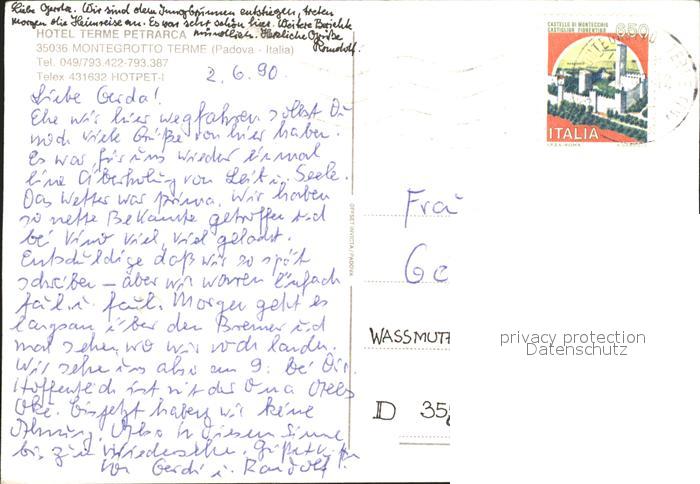 Liebe Gerda. Wir sind dem Jungbrunnen entstiegen, treten
morgen die Heimreise an. Es war sehr schön hier. Weitere Berichte
mündlich. Herzliche Grüße
HOTEL TERME PETRARCA
35036 MONTEGROTTO TERME (Padova - Italia)
Tel. 049/793.422-793.387
Telex 431632 HOTPET-I
2.6.90.
Liebe Gerda!
Ehe wir hier wegfahren sollst Du
noch viele Grüße von hier haben.
Es war für uns wieder einmal
eine Überholung von Leib u. Seele.
Das Wetter war prima. Wir haben
so nette Bekannte getroffen und
bei Vino viel, viel gelacht.
Entschuldige daß wir so spät
schreiben – aber wir waren einfach
faul u. faul. Morgen geht es
langsam über den Brenner und
mal sehen, wo wir noch landen.
Wir sehen uns also am 9. bei
Hoffentlich ist mit der Oma alles
Oke. Bis jetzt haben wir keine
Ahnung. Also in diesem Sinne
bis zum Wiedersehen. Grüße
von Gerdi u.
CASTELLO DI MONTECCHIO
CASTIGLION FIORENTINO
650
ITALIA
I.P.Z.S. - ROMA
OFFSET INVICTA / PADOVA
Frau
Ge
WASSMUTH
D 35
privacy protection
Datenschutz